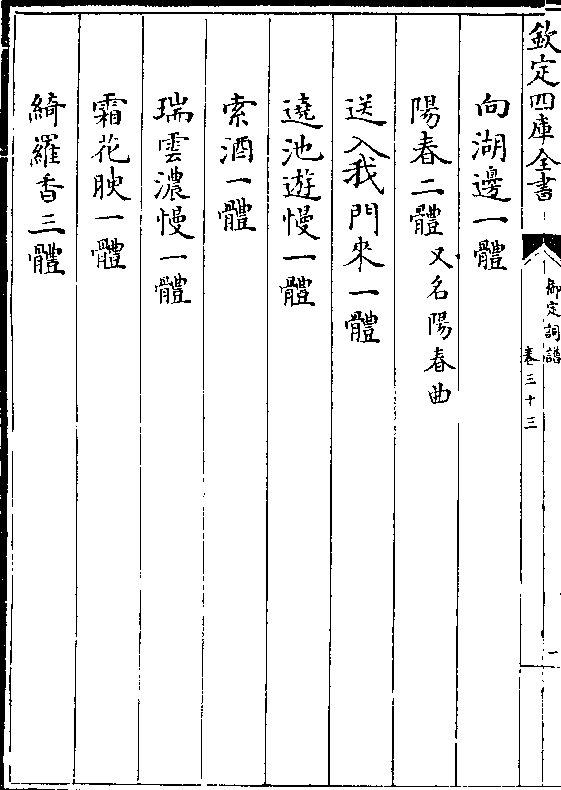 欽定四庫全書
御定詞譜
卷三十三
一
向湖邊一體
陽春二體 又名陽春曲
送入我門來一體
遶池遊慢一體
索酒一體
瑞雲濃慢一體
霜花腴一體
綺羅香三體